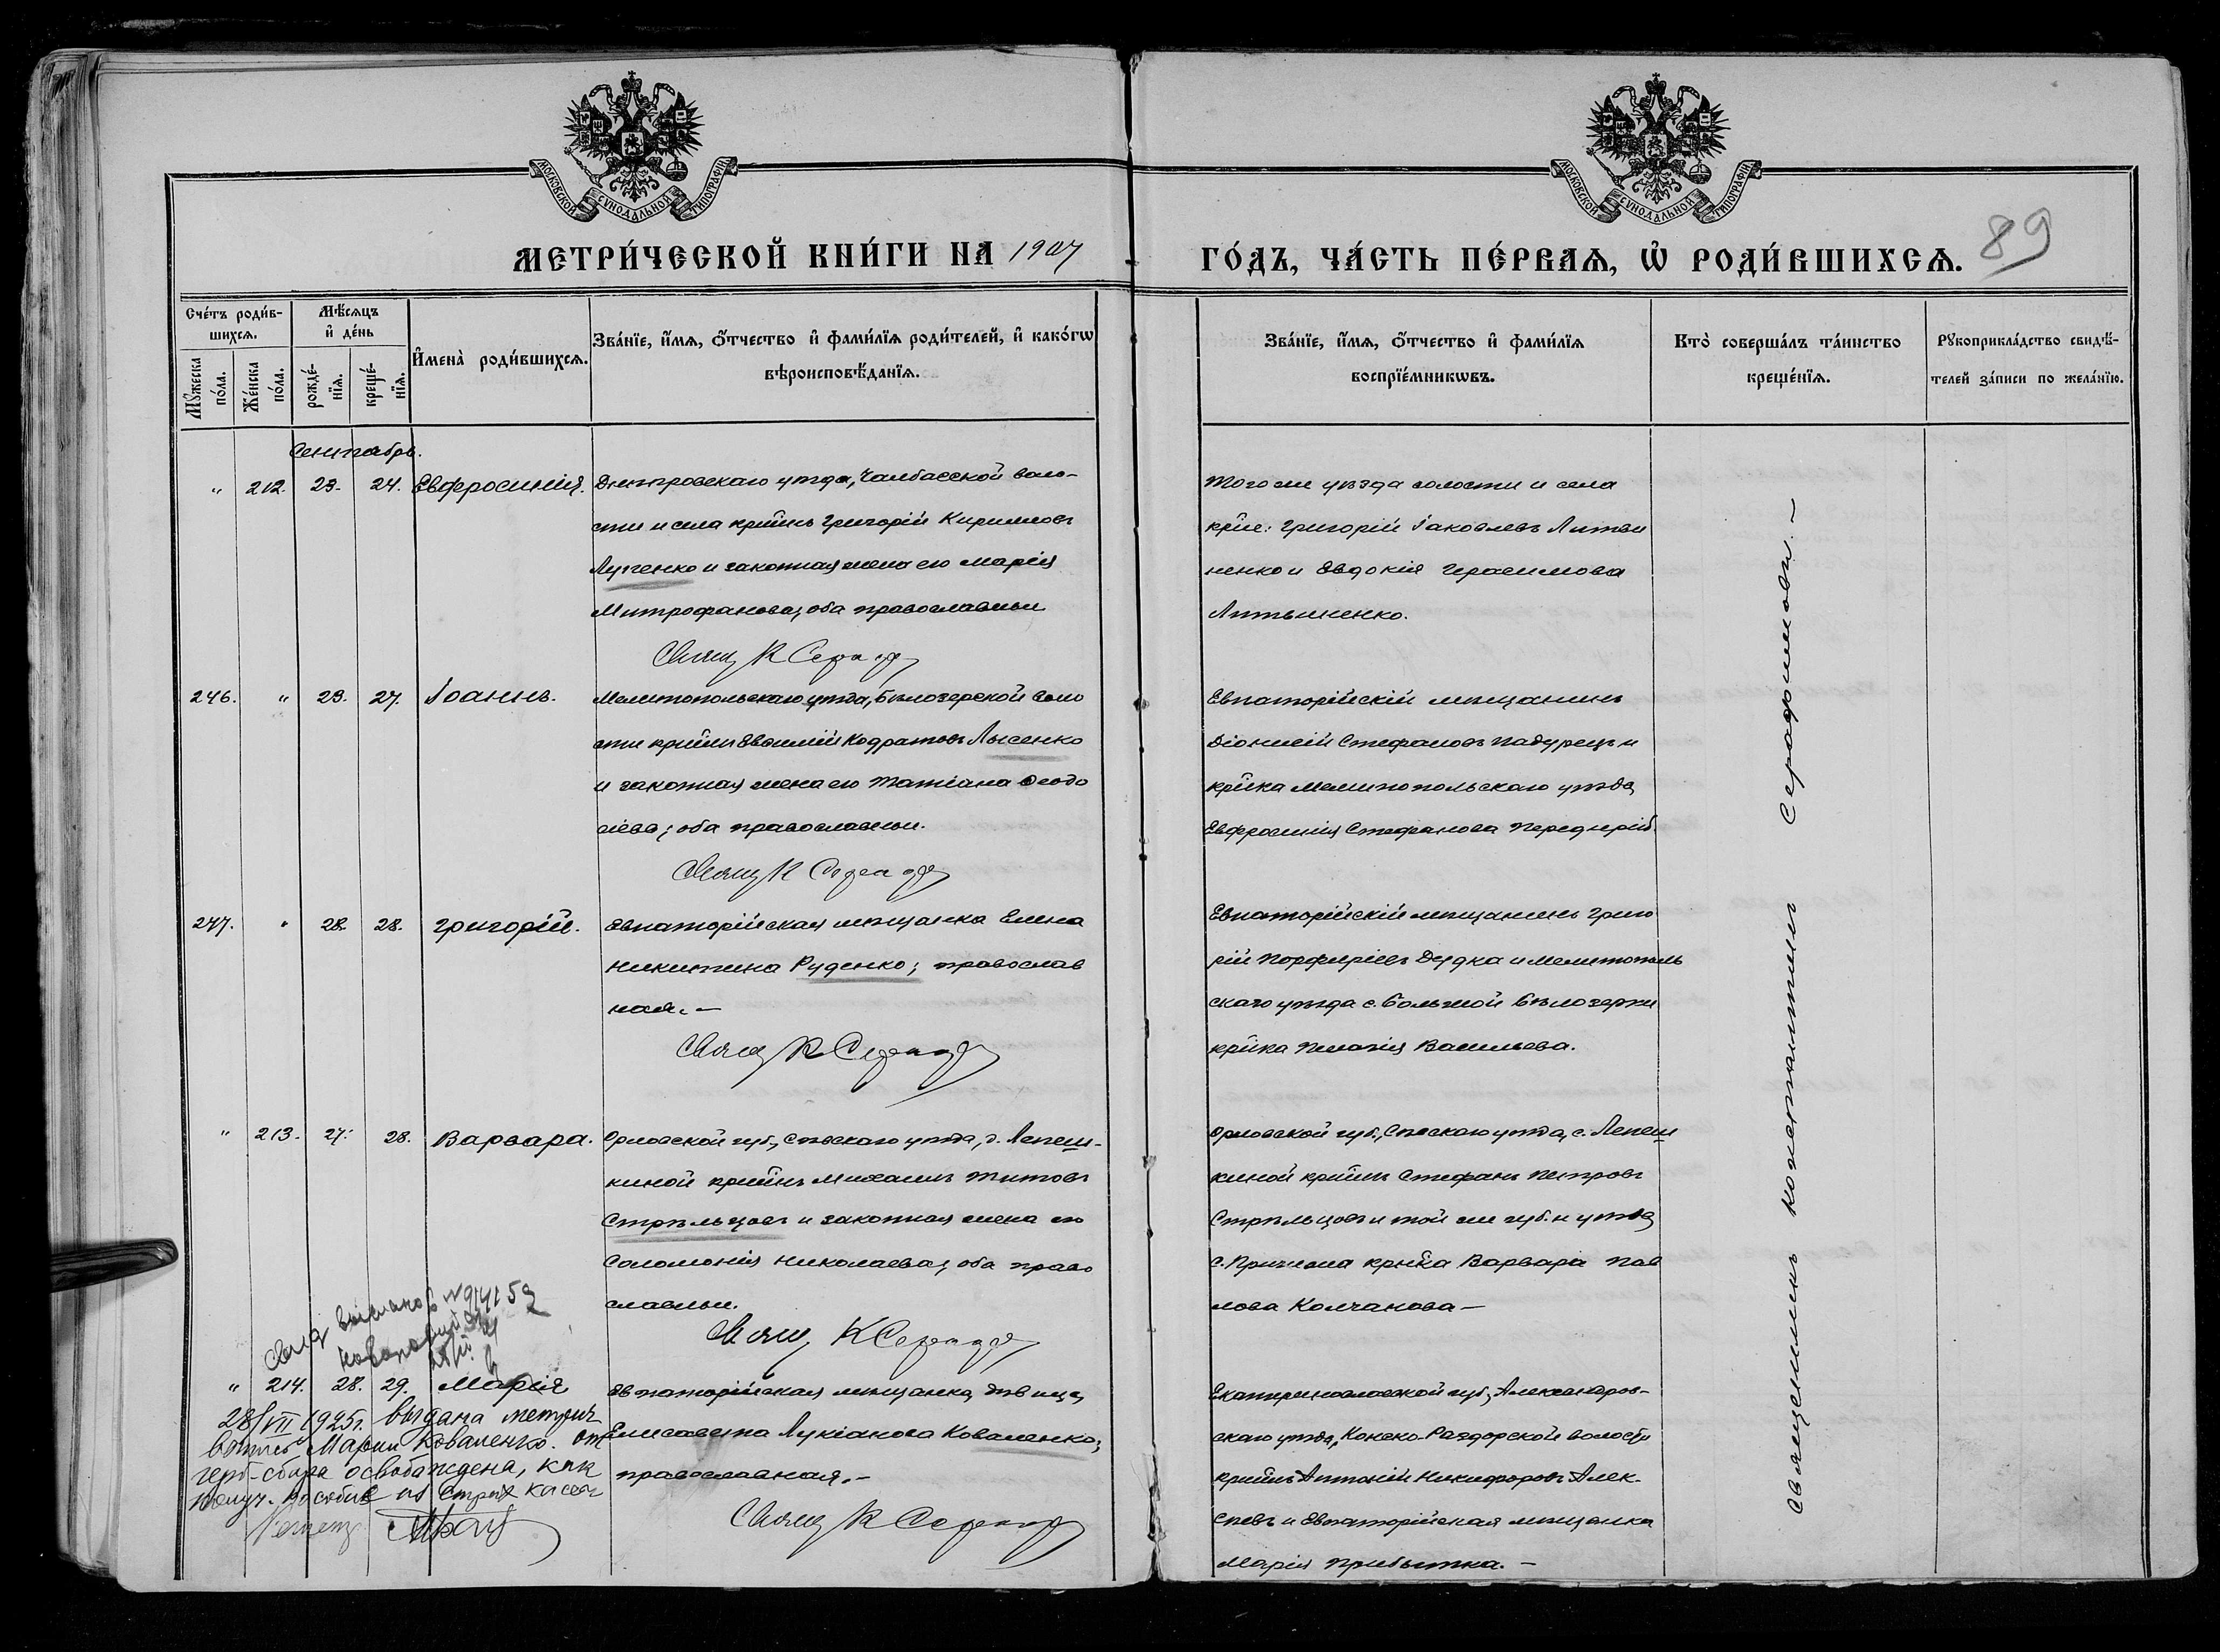 МОСКОВСКОЙ СѴНОДАЛЬНОЙ ТИПОГРАФІИ
МОСКОВСКОЙ СѴНОДАЛЬНОЙ ТИПОГРАФІИ
МЕТРИ́ЧЕСКОЙ КНИ́ГИ НА 1907
ГО́ДЪ, ЧА́СТЬ ПЕ́РВАѦ, Ѡ҆ РОДИ́ВШИХСѦ.
89
Сче́тъ роди́в-
шихсѧ.
Мꙋ́жеска
по́ла.
Же́нска
по́ла.
Мѣ́сѧцъ
и҆ де́нь
рожде́-
нїѧ.
креще́-
нїѧ.
И҆мена̀ роди́вшихсѧ.
Зва́нїе, и҆́мѧ, ѻ҆́тчество и҆ фами́лїѧ роди́телей, и҆ како́гѡ
вѣроисповѣ́данїѧ.
Зва́нїе, и҆́мѧ, ѻ҆́тчество и҆ фами́лїѧ
воспрїе́мникѡвъ.
Кто̀ соверша́лъ та́инство
креще́нїѧ.
Рꙋкоприкла́дство свидѣ́-
телей за́писи по жела́нїю.
Сентябрь.
" 212. 23. 24. Евфросинія.
Днепровскаго уѣзда, Чалбасской воло-
сти и села кр̃инъ Григорій Кирилловъ
Луценко и законная жена его Марія
Митрофанова, оба православные
Свящ К Серанд
Того же уѣзда волости и села
кр̃не: Григорій Іаковлевъ Литви
ненко и Евдокія Герасимова
Литвиненко.
246. " 23. 27. Іоаннъ.
Мелитопольскаго уѣзда, Бѣлозерской воло
сти кр̃инъ Евфимій Кодратовъ Лысенко
и законная жена его Татіана Ѳеодо
сіева; оба православные.
Свящ К Серанд
Евпаторійскій мѣщанинъ
Діонисій Стефановъ Падурецъ и
кр̃нка Мелитопольскаго уѣзда
Евфросинія Стефанова Переднерій
247. " 28. 28. Григорій.
Евпаторійская мѣщанка Елена
Никитина Руденко; православ
ная. —
Свящ К Серанд
Евпаторійскій мѣщанинъ Григо
рій Порфиріевъ Дудка и Мелитополь
скаго уѣзда с. Большой Бѣлозерки
кр̃нка Пелагія Васильева.
" 213. 27. 28. Варвара.
Орловской губ., Сѣвскаго уѣзда, д. Лепеш-
киной кр̃инъ Михаилъ Титовъ
Стрѣльцовъ и законная жена его
Соломонія Николаева, оба право
славные.
Свящ К Серанд
Орловской губ., Сѣвскаго уѣзда, с. Лепеш
киной кр̃инъ Стефанъ Петровъ
Стрѣльцовъ и той же губ. и уѣзда
с. кр̃нка Варвара Пав
лова Колчанова —
" 214. 28. 29. Марія
Евпаторійская мѣщанка, дѣвица,
Елисавета Лукіанова Коваленко;
православная. —
Свящ К Серанд
Екатеринославской губ., Александров-
скаго уѣзда, Конско-Раздорской волости
кр̃инъ Антоній Никифоровъ Алек-
сѣевъ и Евпаторійская мѣщанка
Марія Прибытка. —
28/VII 1925г. выдана метрич
выпись Марии Коваленко. от
герб-сбора освобождена, как
получ. пособие из Страх кассы
Священникъ Константинъ Серафимовъ. —